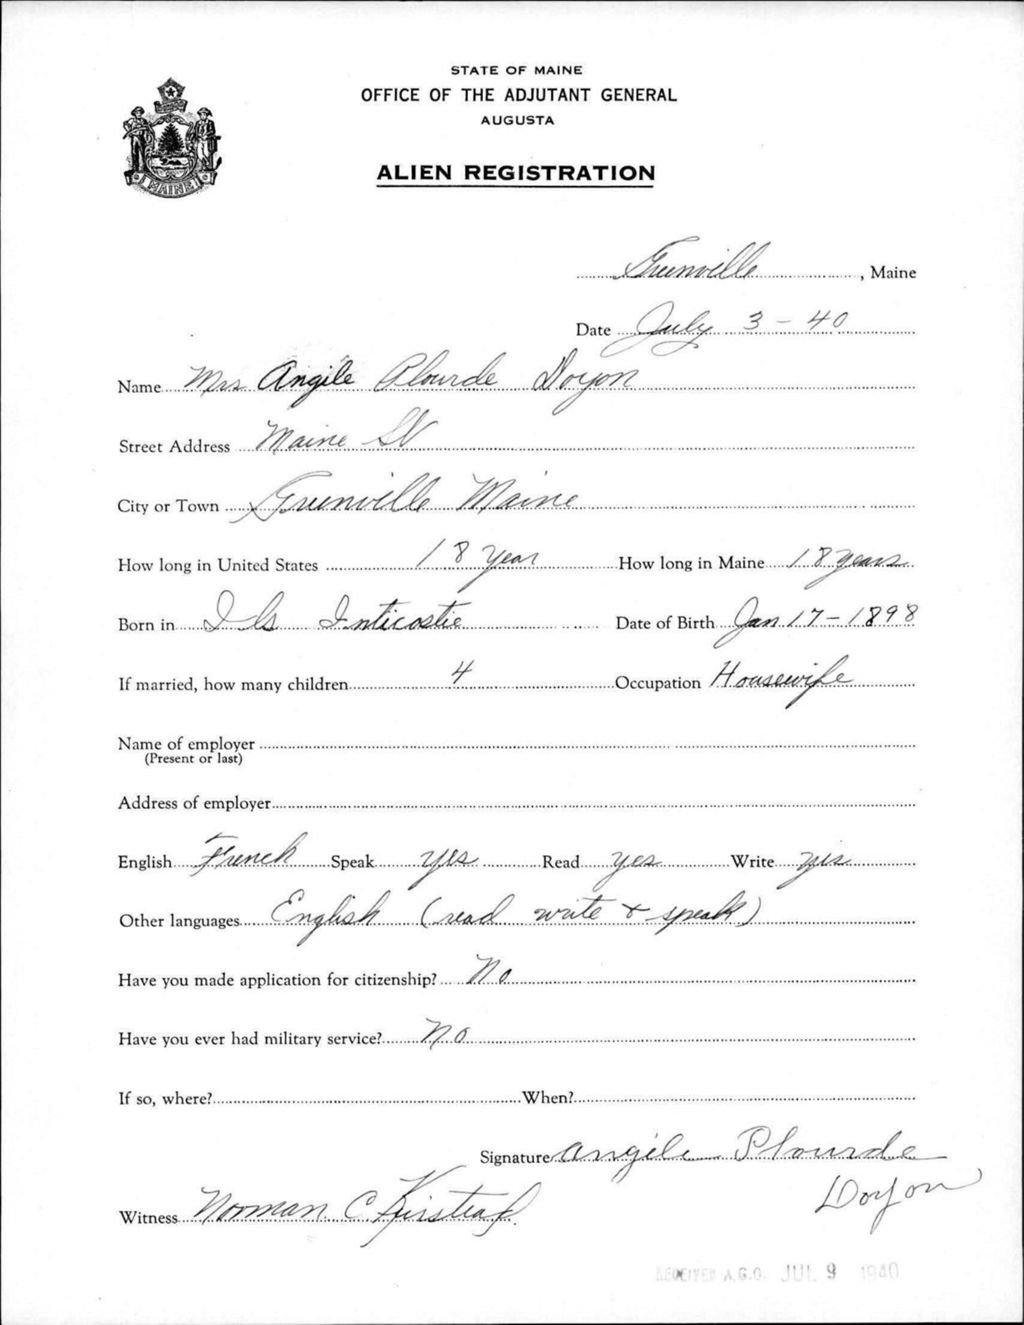 STATE OF MAINE
OFFICE OF THE ADJUTANT GENERAL
AUGUSTA
ALIEN REGISTRATION
MAINE
Greenville, Maine
Date July 3 - 40
Name Mrs Angile Plourde Doyon
Street Address Maine St
City or Town Greenville Maine
How long in United States 18 Year How long in Maine 18 years
Born in Ils Inticostie Date of Birth Jan 17 - 1898
If married, how many children 4 Occupation Housewife
Name of employer
(Present or last)
Address of employer
English French Speak yes Read yes Write yes
Other languages English (read write & speak)
Have you made application for citizenship? No
Have you ever had military service? No
If so, where? When?
Signature Angéle Plourde
Doyon
Witness Norman C
RECEIVED A.G.O. JUL 9 1940